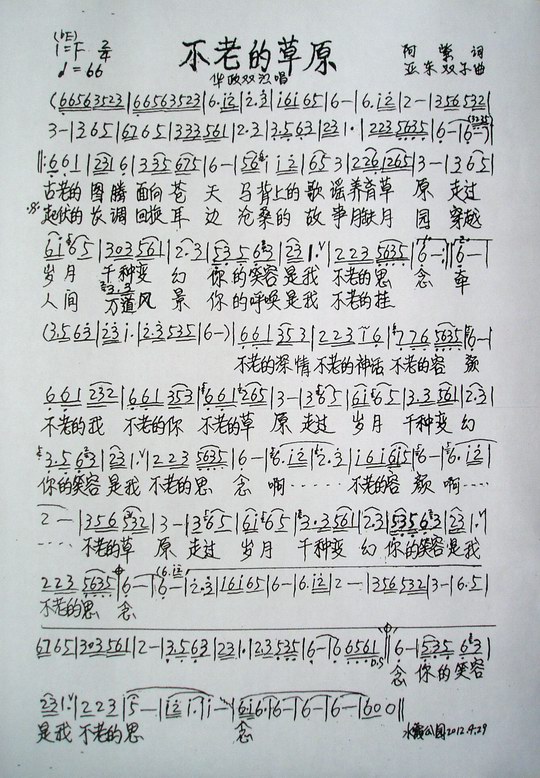 (bE)
1=F 2/4
♩=66
不老的草原
华政双江唱
阿紫 词
亚东 双木 曲
(66563523|66563523|6.i2|2.3|i6i65|6—|6.i2|2—|356532|
3—|365|6765|333561|2.3|3.563|231.|2235635|6—|6—)
||:661|2316|335675|6—|56i2|i65 3|2261265|3—|365|
古老的 图腾 面向 苍 天 马背上的 歌谣 养育草 原 走过
起伏的 长调 回换 耳 边 沧桑的 故 事 月缺月 圆 穿越
6i65|303561|2.3|535663|231.|2235635|6—:||6—|
岁月 千种变 幻 你的笑容是我 不老的思 念 牵
人间 万道风 景 你的呼唤是我 不老的挂
(3.563|231.|2.3535|6—)|661353|223i6|7765635|6—|
不老的深情 不老的神话 不老的容 颜
661232|661353|661265|3—|365|6i65|3.3561|2.3|
不老的我 不老的你 不老的草 原 走过 岁月 千种变 幻
3.563|231.|2235635|6—|6.i2|2.3|i6i6i5|6.i2|
你的笑容是我 不老的思 念 啊····· 不老的容 颜 啊····
2—|356532|3—|365|6i65|3.3561|2.3|535663|231.|
····· 不老的草 原 走过 岁月 千种变 幻 你的笑容是我
2235635|6—|6—(6.i2|2.3|i6i65|6—|6.i2|2—|356532|3—|6.5|
不老的思 念
6765|303561|2—|3.563|231.|23535|6—|66561|6—|535 63|
D.S
念 你的笑容
231.|223|5—|i2i.|i—|6i6.|6—|6—|6—|600||
是我 不老的思 念
水霞公园2012.4.29